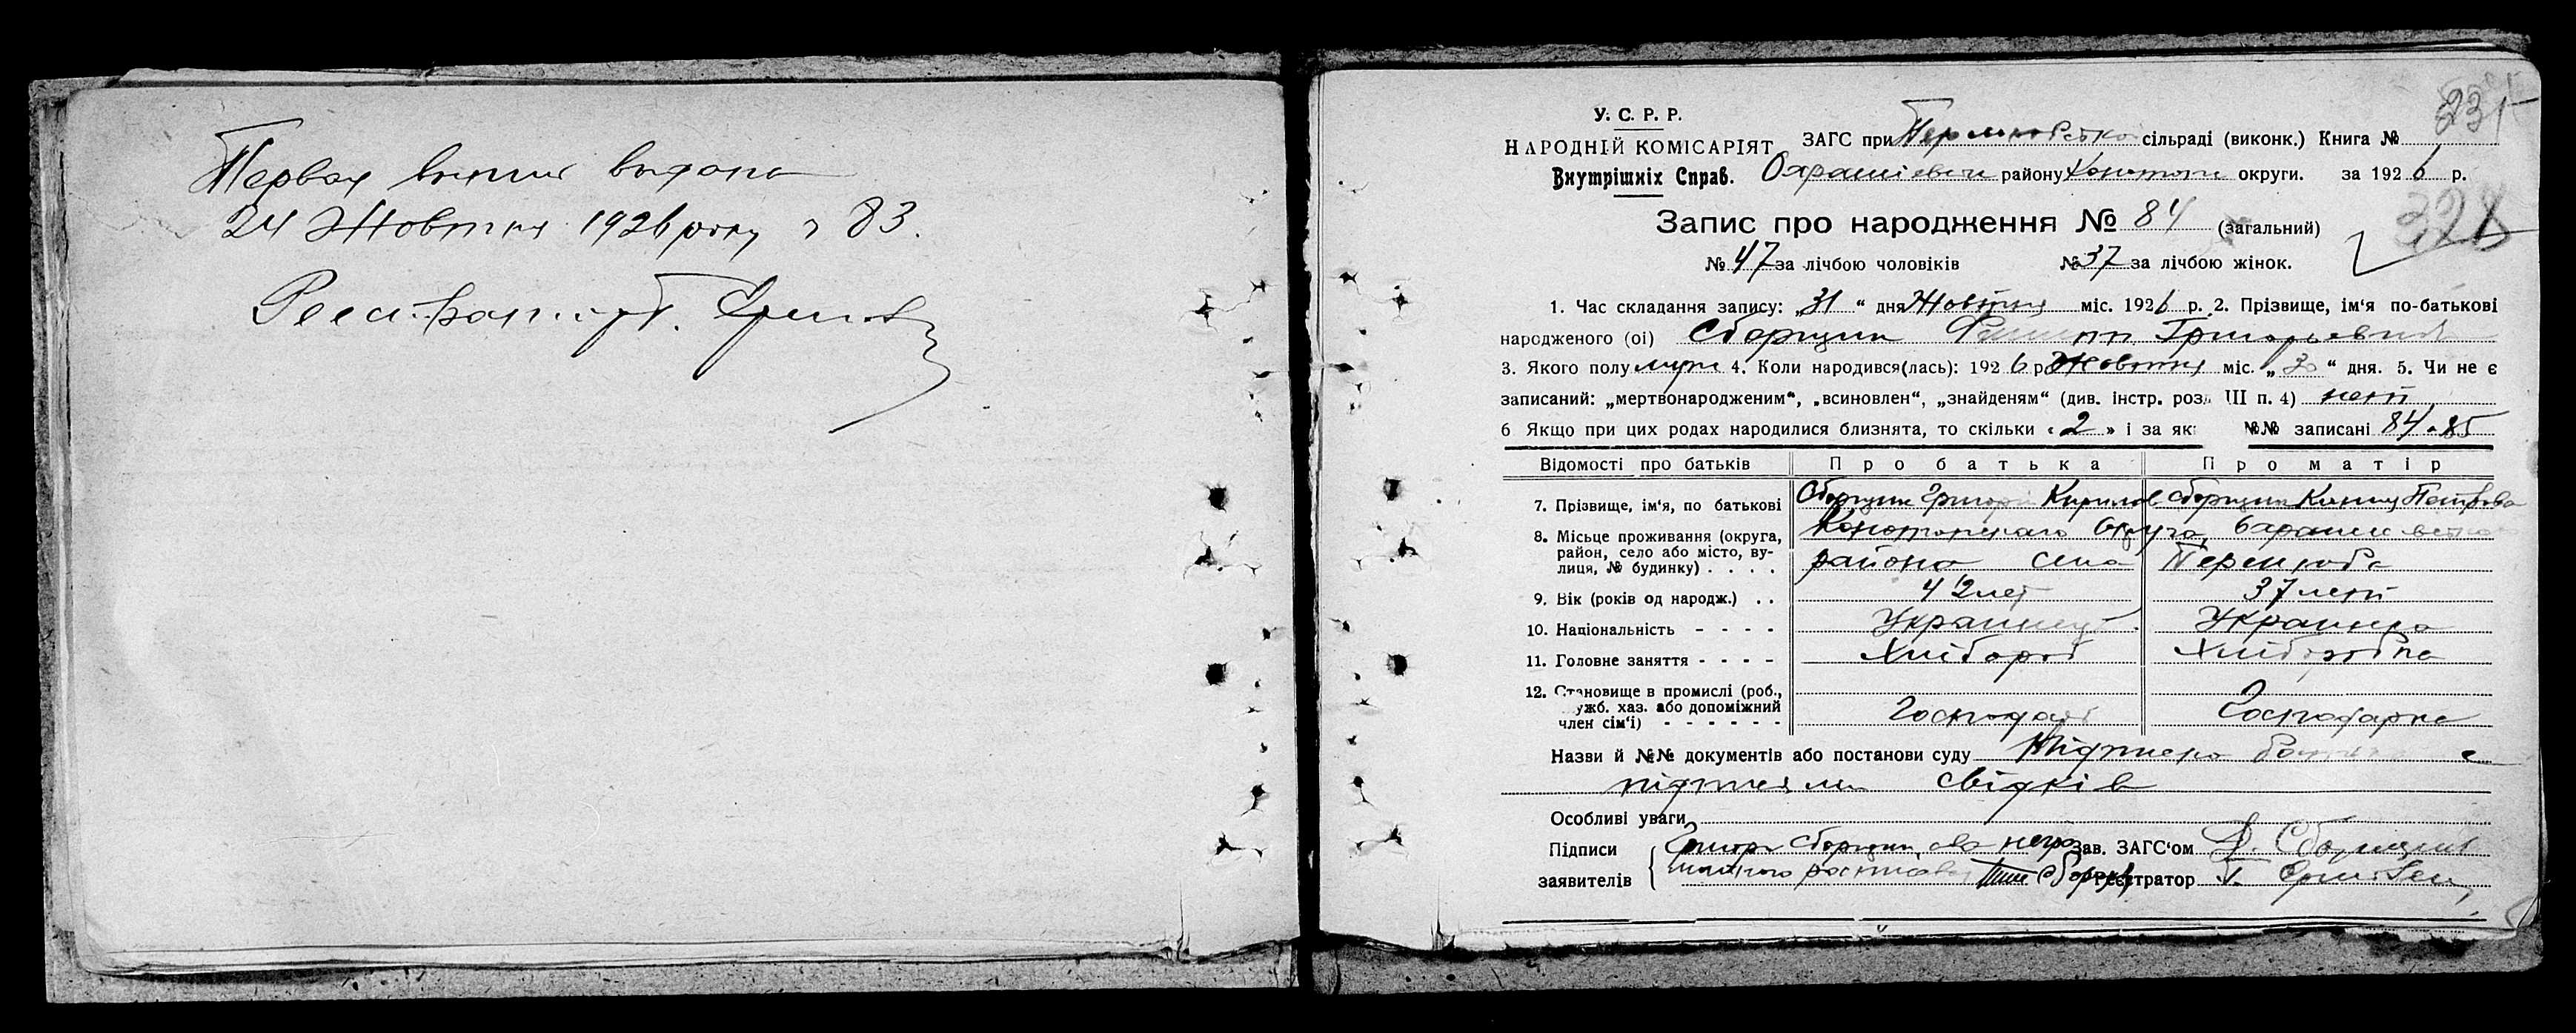 Первая выпись выдана
24 Жовтня 1926 року № 83.
У. С. Р. Р.
НАРОДНІЙ КОМІСАРІЯТ
Внутрішніх Справ.
ЗАГС при сільраді (виконк.) Книга № 231
району Конотоп округи. за 1926 р.
Запис про народження № 84 (загальний)
328
№ 47 за лічбою чоловіків № 37 за лічбою жінок.
1. Час складання запису: „31“ дня Жовтня міс. 1926 р. 2. Прізвище, ім‘я по-батькові
народженого (ої) Сборщик Филипп Григорьевич
3. Якого полу муж 4. Коли народився(лась): 1926 р Жовтня міс. „30“ дня. 5. Чи не є
записаний: „мертвонародженим“, „всиновлен“, „знайденям“ (див. інстр. розд. III п. 4) нет
6 Якщо при цих родах народилися близнята, то скільки «2» і за які №№ записані 84 и 85
Відомості про батьків Про батька Про матір
7. Прізвище, ім‘я, по батькові Сборщик Григор Кирилов Сборщик Петрова
8. Місьце проживання (округа,
район, село або місто, ву-
лиця, № будинку) . . . .
Конотопского Округа,
района села
9. Вік (років од народж.) . . 42 лет 37 лет
10. Національність - - - - Украинец Украинка
11. Головне заняття - - - - Хлібороб Хліборобка
12. Становище в промислі (роб.,
ужб. хаз. або допоміжний
член сім‘ї) - - - - - - Господар Господарка
Назви й №№ документів або постанови суду
свідків
Особливі уваги
Підписи Григор Сборщик, а за него Зав. ЗАГС‘ом
заявителів Сборщик Реєстратор